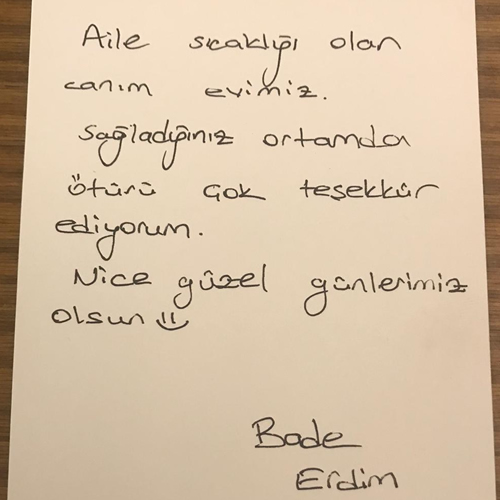 Aile sıcaklığı olan
canım evimiz.
Sağladığınız ortamdan
ötürü çok teşekkür
ediyorum.
Nice güzel günlerimiz
olsun
Bade
Erdim